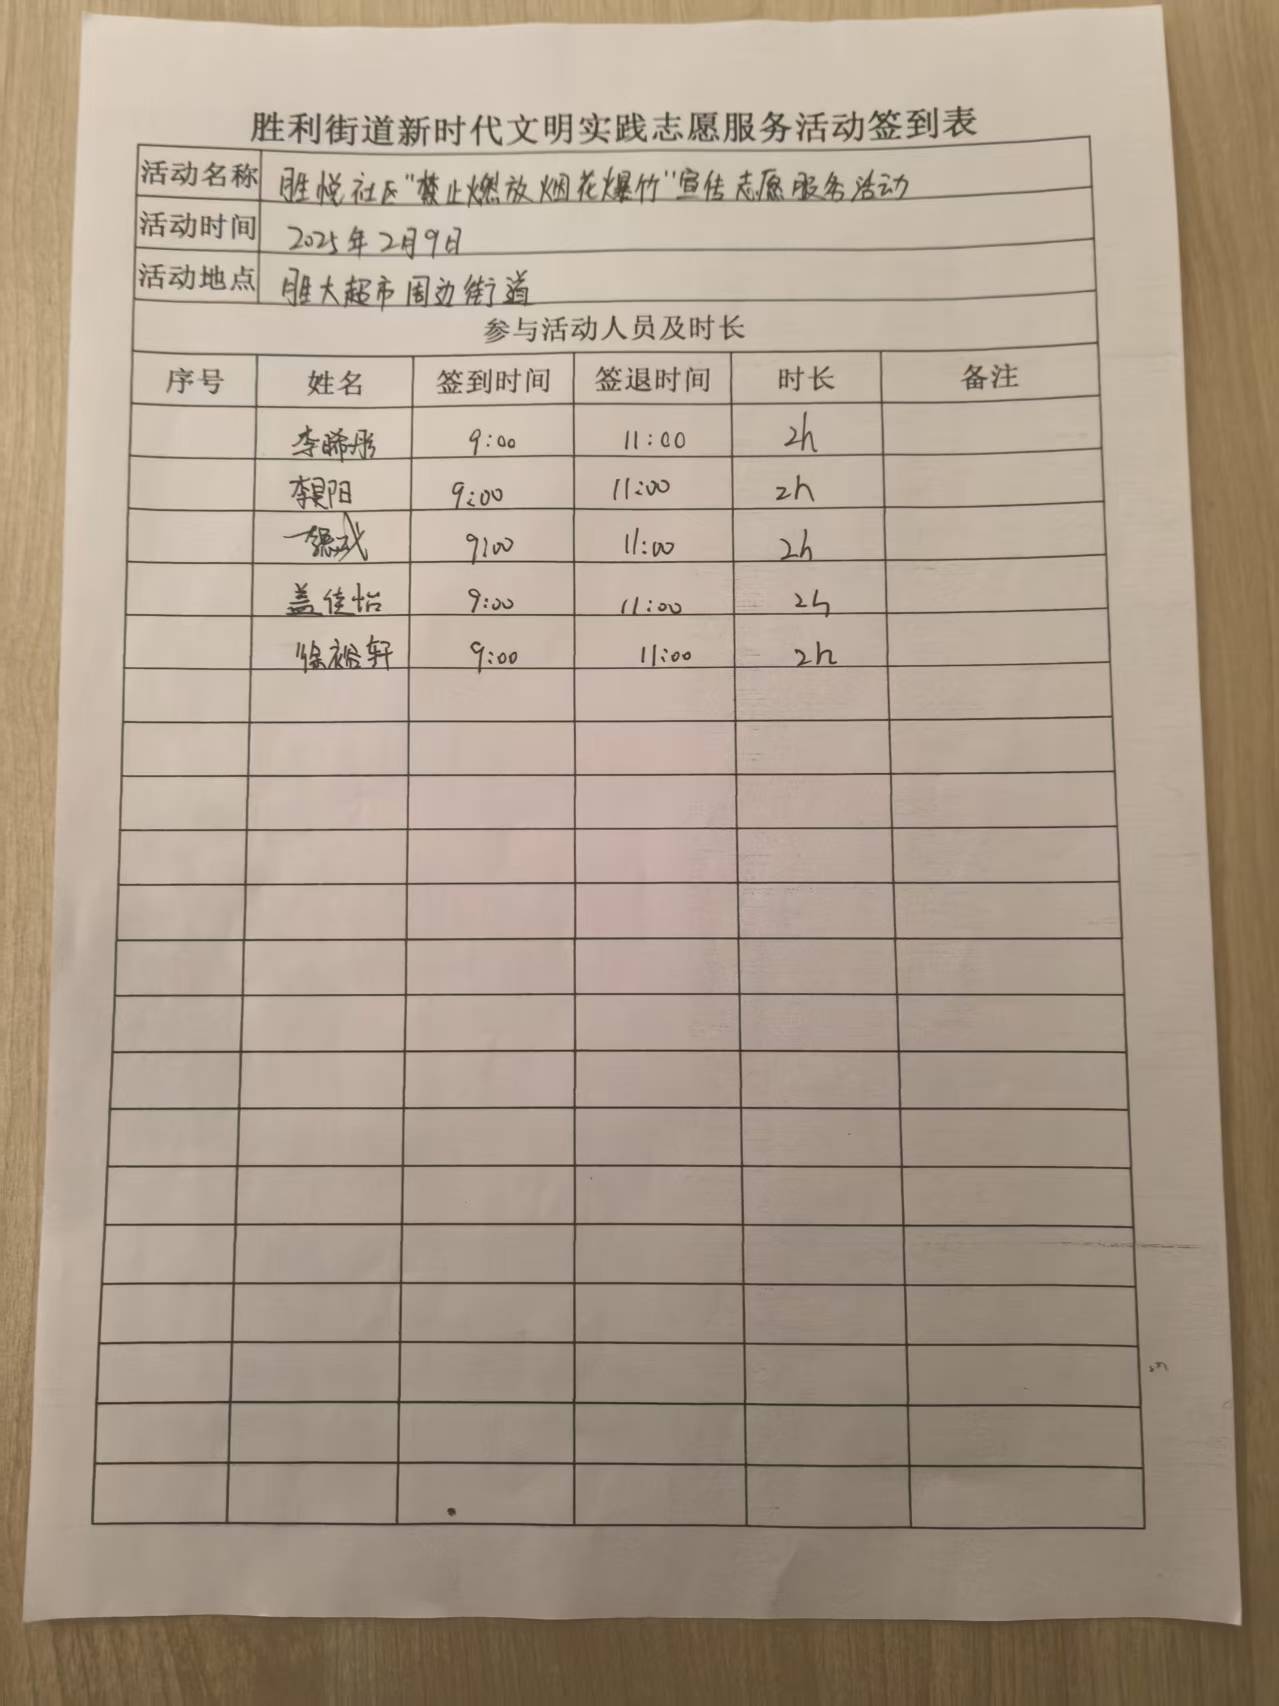 胜利街道新时代文明实践志愿服务活动签到表
活动名称 胜悦社区"禁止燃放烟花爆竹"宣传志愿服务活动
活动时间 2025年2月9日
活动地点 胜大超市周边街道
参与活动人员及时长
序号 姓名 签到时间 签退时间 时长 备注
李晞彤 9:00 11:00 2h
李昊阳 9:00 11:00 2h
9:00 11:00 2h
盖佳怡 9:00 11:00 2h
徐裕轩 9:00 11:00 2h